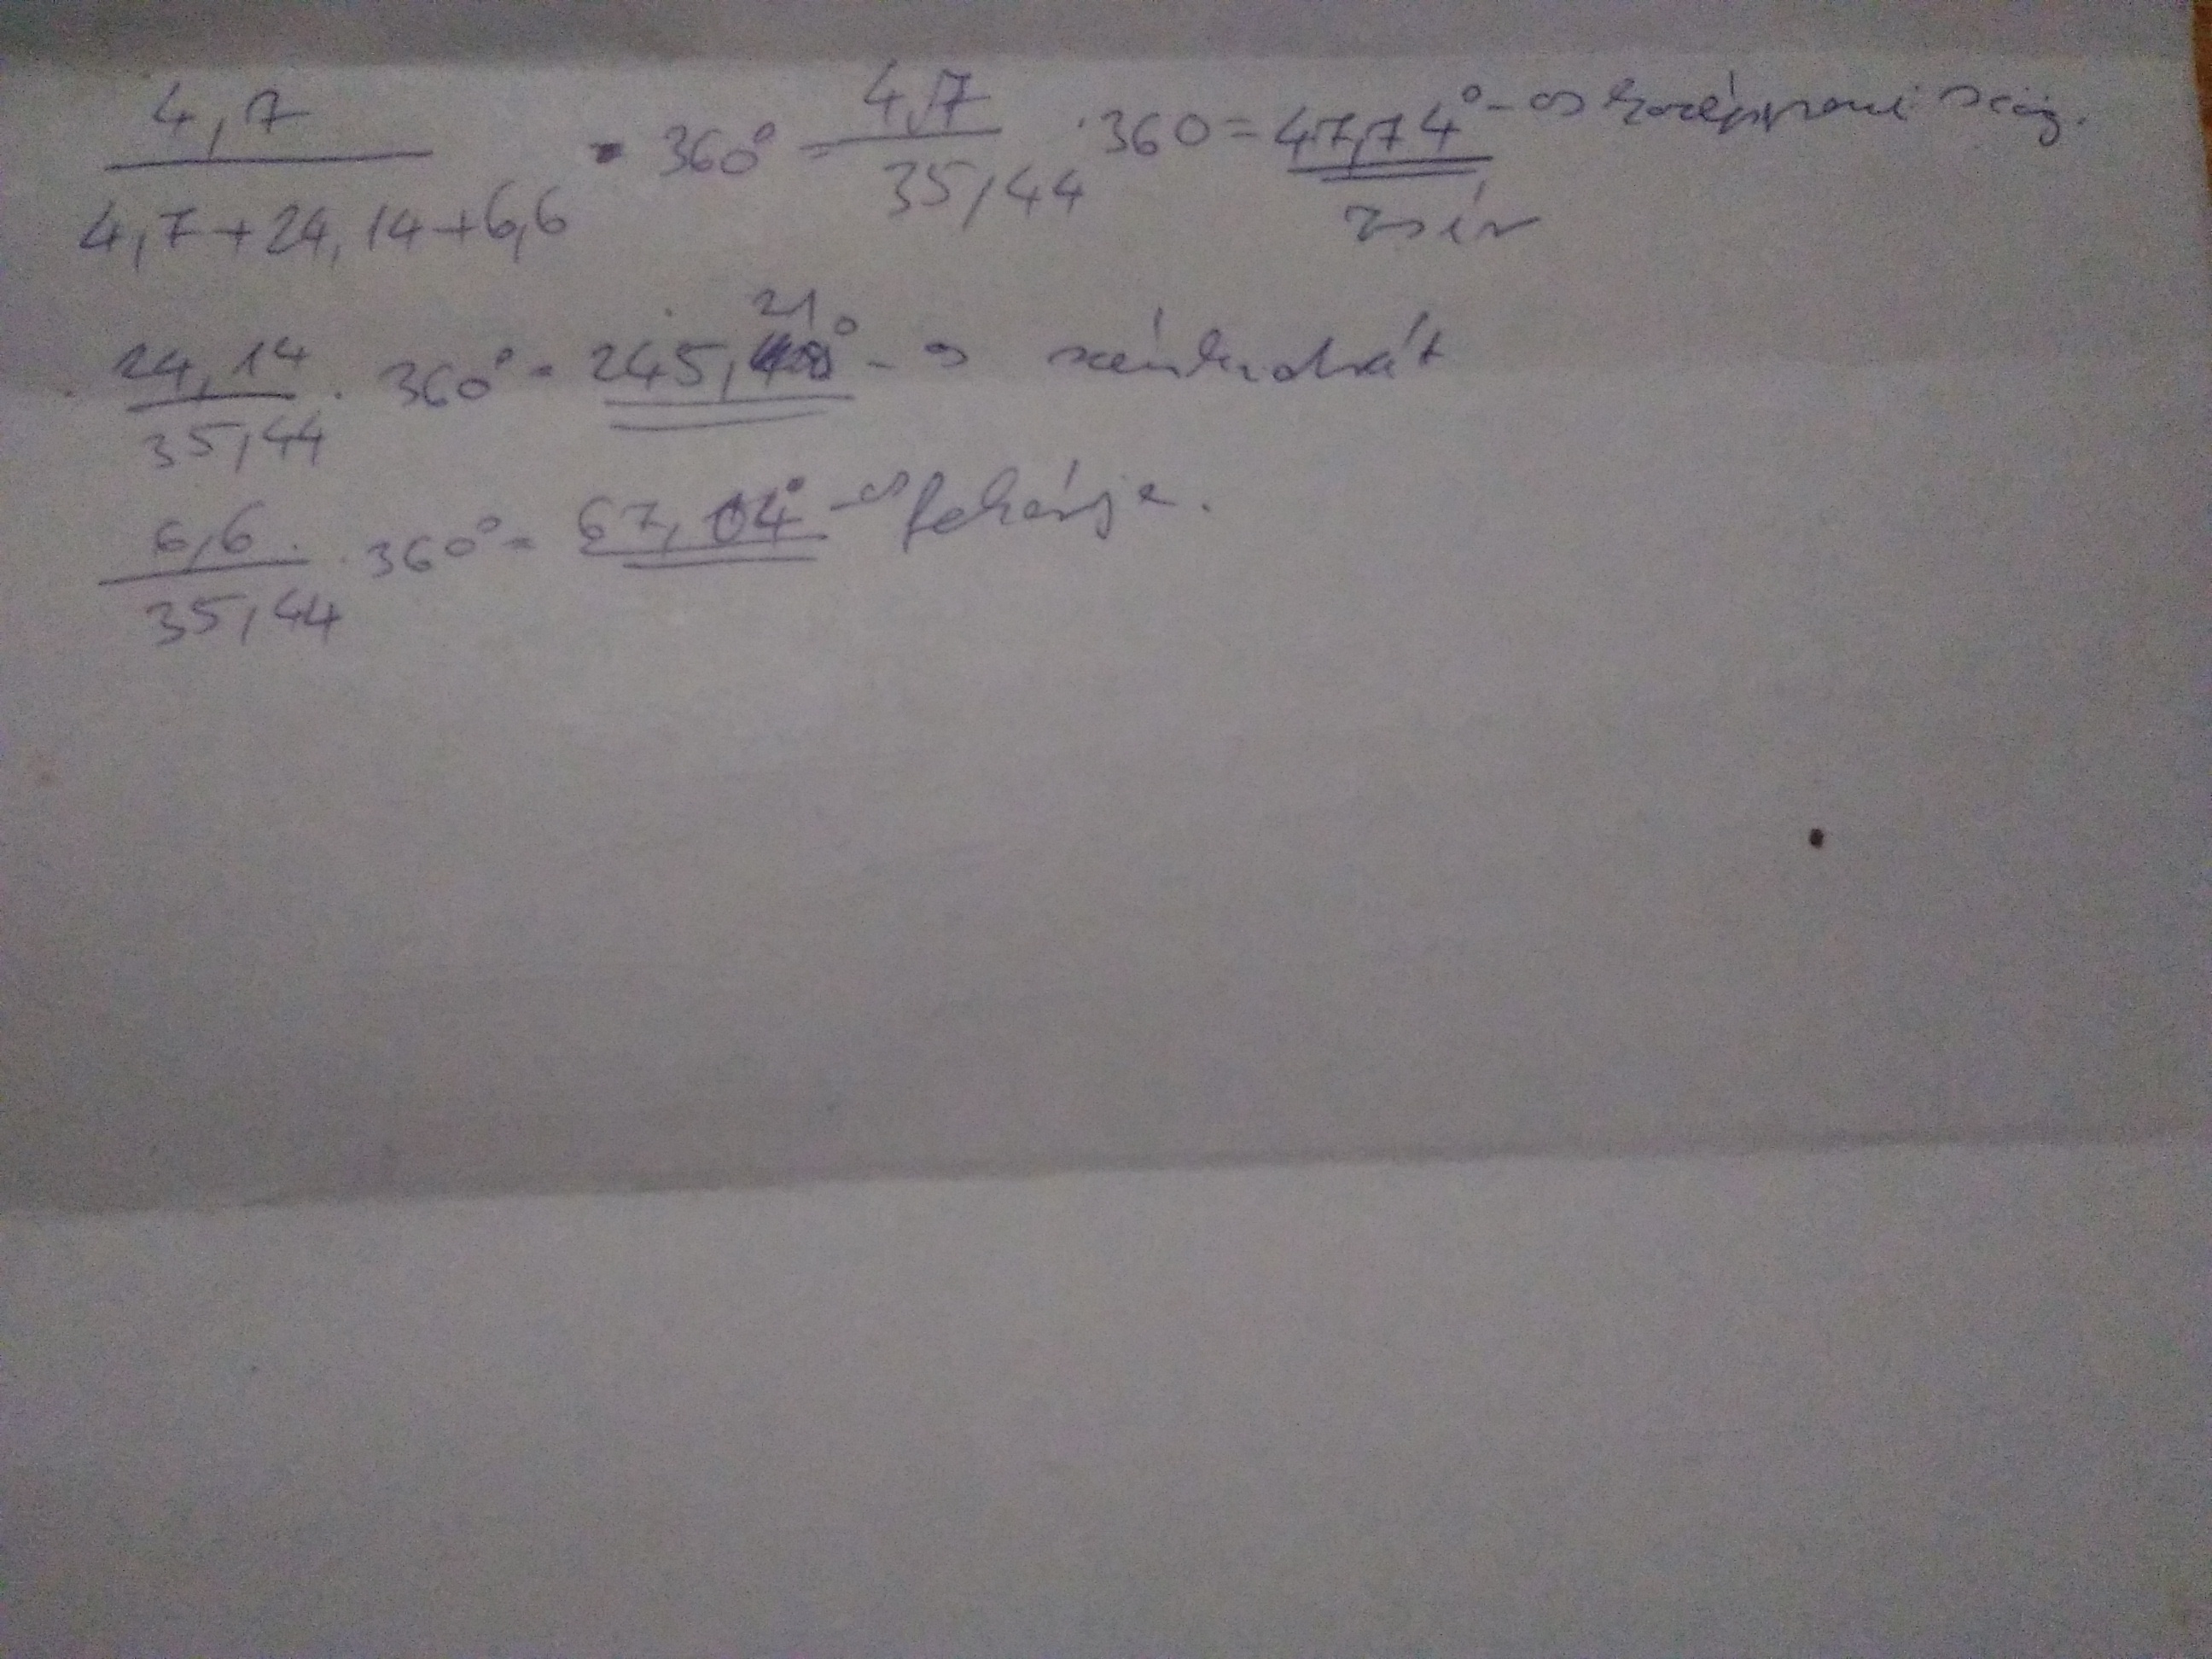 4,7 / 4,7+24,14+6,6 · 360° = 4,7 / 35,44 · 360 = 47,74°-os középponti szög.
zsír
24,14 / 35,44 · 360° = 245,21°-os szénhidrát
6,6 / 35,44 · 360° = 67,04°-os fehérje.